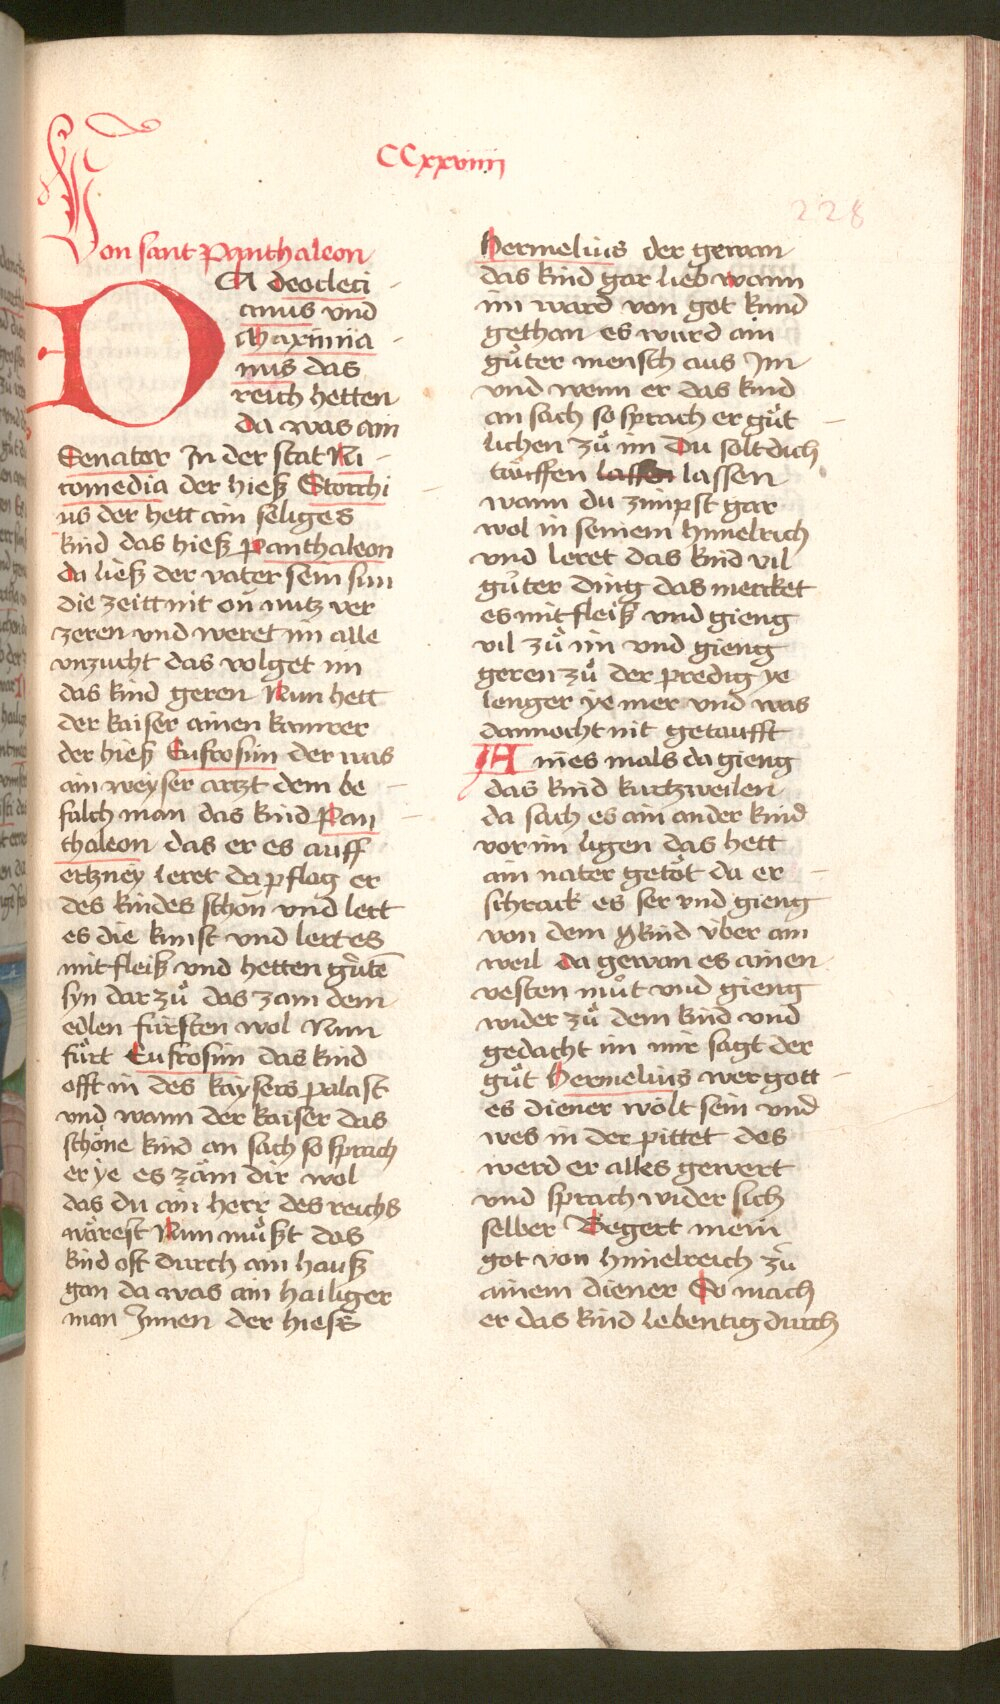 CCxxviiii
228
Von sant Panthaleon
DA deocleci
anus vnd
Maximia
nus das
reich hetten
da was ain
Senator In der stat Ni
comedia der hieß Storchi
us der hett ain seliges
kind das hieß Panthaleon
da ließ der vater sein sun
die zeitt nit on nutz ver
zeren vnd weret im alle
vnzucht das volget im
das kind geren Nun hett
der kaiser ainen kamrer
der hieß Eufrosim der was
ain weyser artzt dem be
falch man das kind Pan
thaleon das er es auff
ertzney leret da pflag er
des kindes schon vnd lert
es die kunst vnd lert es
mit fleiß vnd hetten gůte
syn dar zů das zam dem
edlen fürsten wol Nun
fůrt Eufrosim das kind
offt in des kaysers palast
vnd wann der kaiser das
schöne kind an sach so sprach
er ye es zäm dir wol
das du ain herr des reichs
wärest Nun můßt das
kind oft durch ain hauß
gan da was ain hailiger
man Innen der hiess
Hermelius der gewan
das kind gar lieb wann
im ward von got kund
gethan es wurd ain
gůter mensch aus Im
vnd wenn er das kind
an sach so sprach er gůt
lichen zů im Du solt dich
tauffen lassen lassen
wann du zimpst gar
wol in seinem himelrich
vnd leret das kind vil
gůter ding das mercket
es mit fleiß vnd gieng
vil zů im vnd gieng
geren zů der predig ye
lenger ye mer vnd was
dannocht nit getaufft
Aines mals da gieng
das kind kurtzweilen
da sach es ain ander kind
vor im ligen das hett
ain nater getöt da er
schrack es ser vnd gieng
von dem kind vber ain
weil da gewan es ainen
vesten můt vnd gieng
wider zů dem kind vnd
gedacht im mir sagt der
gůt Hermelius wer gott
es diener wölt sein vnd
wes in der pittet des
werd er alles gewert
vnd sprach wider sich
selber Begert mein
got von himelreich zů
ainem diener So mach
er das kind lebentig durch